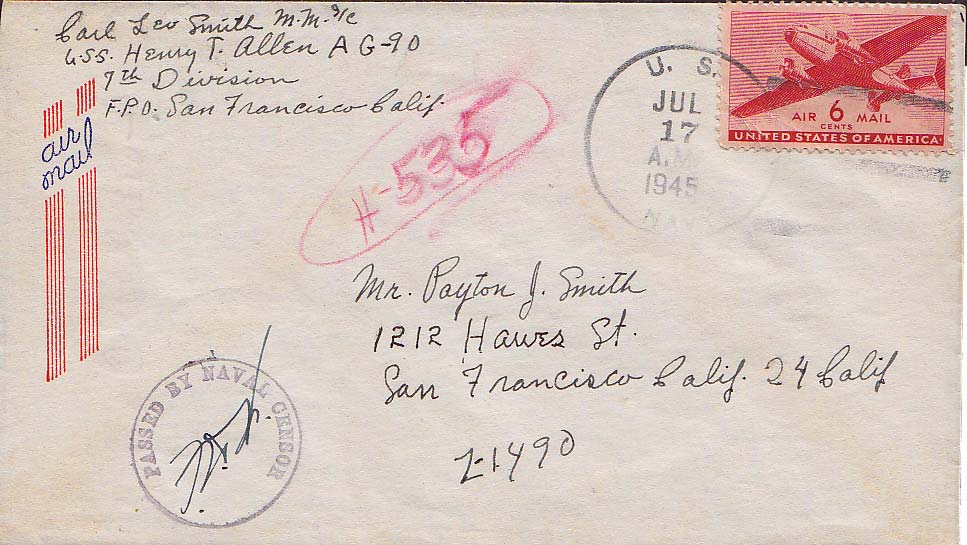 Carl Leo Smith M.M. 3/c
U.S.S. Henry T. Allen AG-90
7th Division
F.P.O. San Francisco Calif.
air
mail
H-535
U. S.
JUL
17
A.M.
1945
NAVY
AIR 6 MAIL
CENTS
UNITED STATES OF AMERICA
Mr. Payton J. Smith
1212 Hawes St.
San Francisco Calif. 24 Calif
Z-1490
PASSED BY NAVAL CENSOR